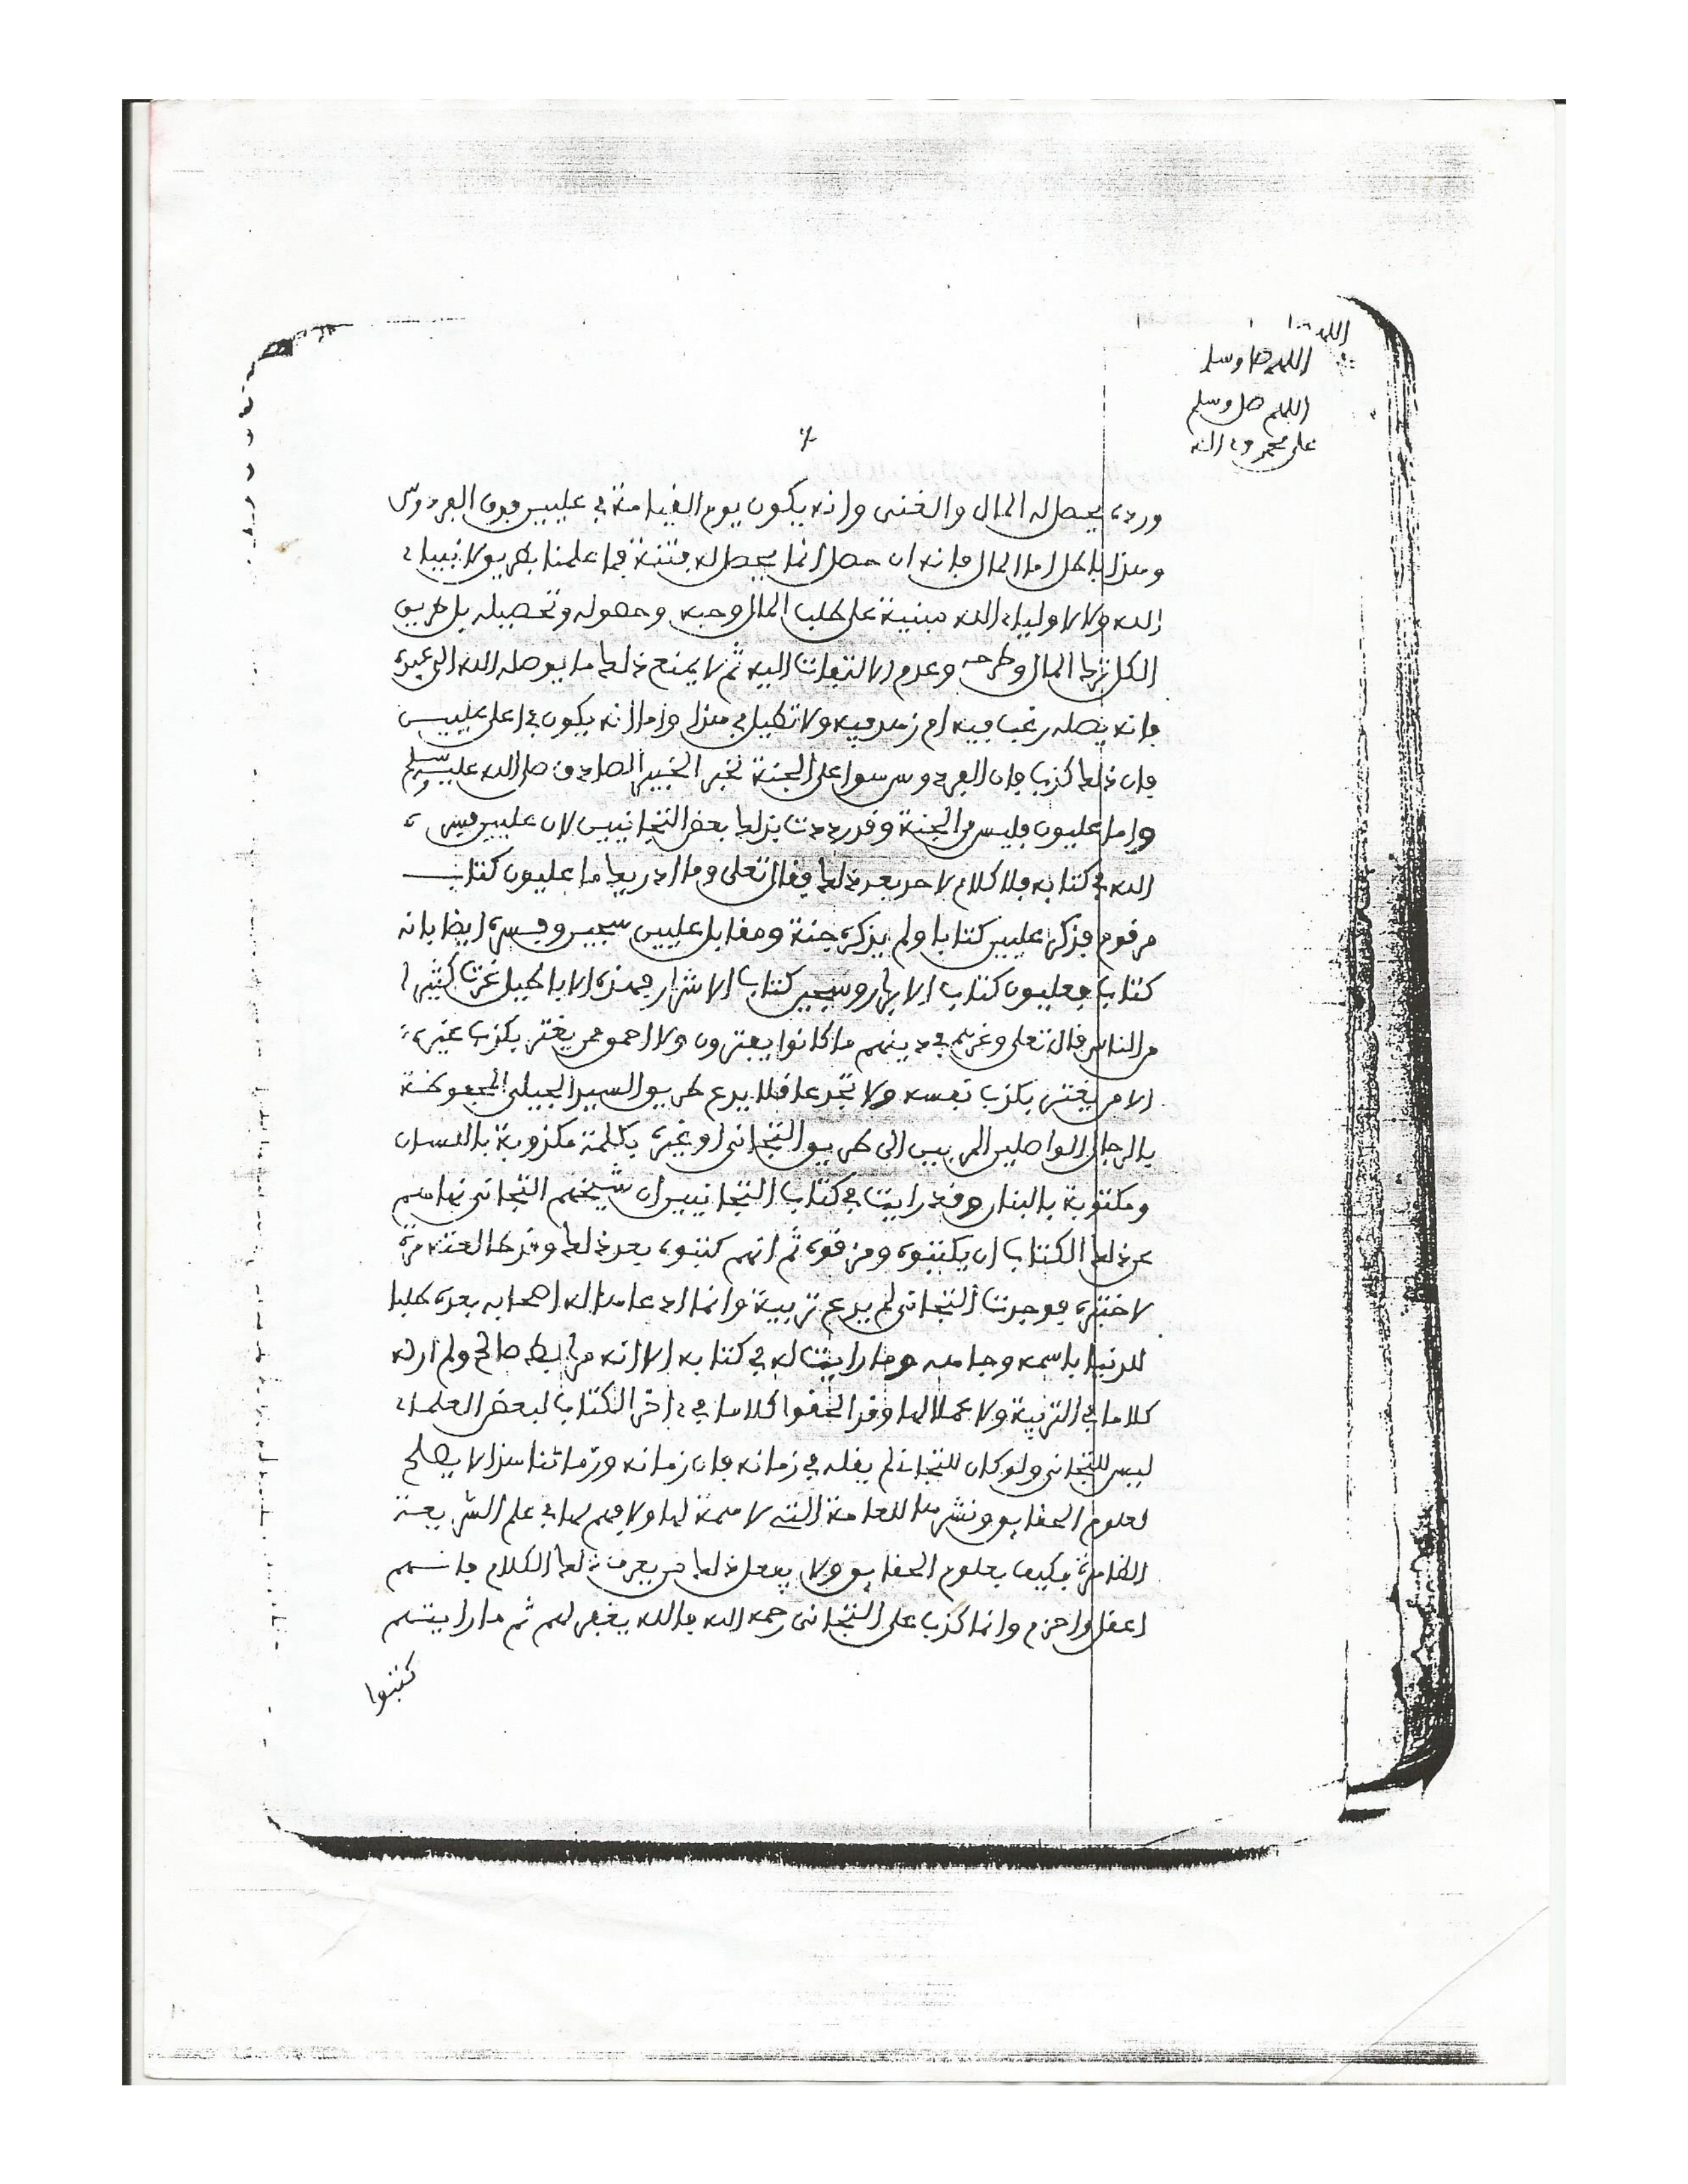 اللهم صل وسلم
اللهم صل وسلم
على محمد وءاله
ورده يحصل له المال والغنى وانه يكون يوم القيامة في عليين فوق الفردوس
وهذا باطل اما المال فانه ان حصل انما يحصل له فتنة فما علمنا طريق لانبياء
الله ولا لاولياء الله مبنية على طلب المال وحبه وحصوله وتحصيله بل طريق
الكل ترك المال وطرحه وعدم الالتفات اليه ثم لا يمنع ذلك ما يوصله الله الى عبده
فانه يصله رغب فيه ام زهد فيه ولا تطيل في هذا واما انه يكون في اعلى عليين
فان ذلك كذب فان الفردوس هو اعلى الجنة لخبر الخبير الصادق صلى الله عليه وسلم
واما عليون فليس من الجنة وقد رددت بذلك بعض التجانيين لان عليين فسره
الله في كتابه فلا كلام لاحد بعد ذلك فقال تعلى وما ادريك ما عليون كتاب
مرقوم فذكر عليين كتابا ولم يذكره جنة ومقابل عليين سجين وفسره ايضا بانه
كتاب فعليون كتاب الابرار وسجين كتاب الاشرار فهذه الاباطيل غرت كثيرا
من الناس قال تعلى وغرهم في دينهم ما كانوا يفترون ولا احمق ممن يغتر بكذب غيره
الا من يغتر بكذب نفسه ولا تجد عاقلا يدع طريق السيد الجيلي المحفوظة
بالرجال الواصلين المربين الى طريق التجاني او غيره بكلمة مكذوبة باللسان
ومكتوبة بالبنان وقد رايت في كتاب التجانيين ان شيخهم التجاني نهاهم
عن ذلك الكتاب ان يكتبوه ومزقوه ثم انهم كتبوه بعد ذلك وقد طالعته مرة
لاختبره فوجدت التجاني لم يدع تربية وانما ادعاها له اصحابه بعده طلبا
للدنيا باسمه وجاهه وما رايت له في كتابه الا انه مرابط صالح ولم ار له
كلاما في التربية ولا عملا لها وقد الحقوا كلاما في ءاخر الكتاب لبعض العلماء
ليس للتجاني ولو كان للتجاني لم يقله في زمانه فان زمانه وزماننا هذا لا يصلح
لعلوم الحقايق ونشرها للعامة التي لا همة لها ولا فهم لها في علم الشريعة
الظاهرة فكيف بعلوم الحقايق ولا يفعل ذلك من يعرف ذلك الكلام فانهم
اعقل واحزم وانما كذب على التجاني رحمه الله فالله يغفر لهم ثم ما رايتهم
كتبوا